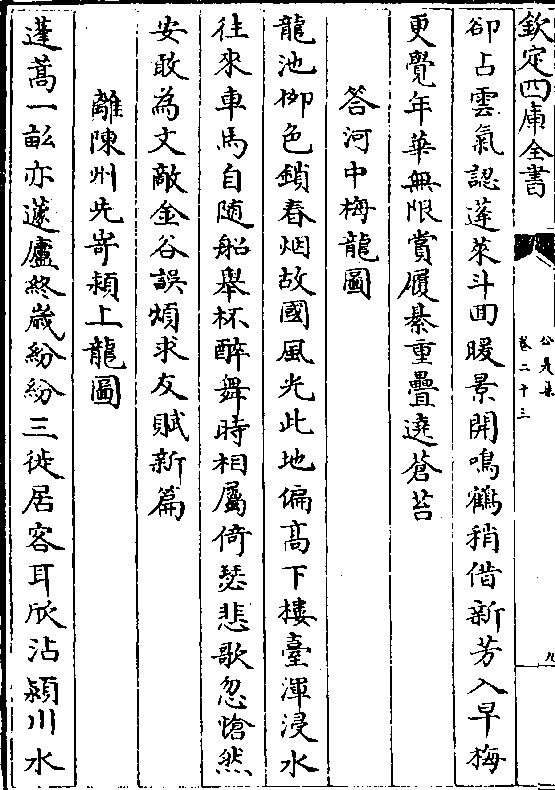 欽定四庫全書
公是集
卷二十三
九
卻占雲氣認蓬萊斗回暖景開鳴鶴稍借新芳入早梅
更覺年華無限賞履綦重疊遶蒼苔
答河中梅龍圖
龍池柳色鎖春烟故國風光此地偏髙下樓臺渾浸水
往來車馬自随船舉杯醉舞時相屬倚瑟悲歌忽愴然
安敢為文敵金谷誤煩求友賦新篇
離陳州先寄潁上龍圖
蓬蒿一畝亦蘧廬終歲紛紛三徙居客耳欣沾潁川水